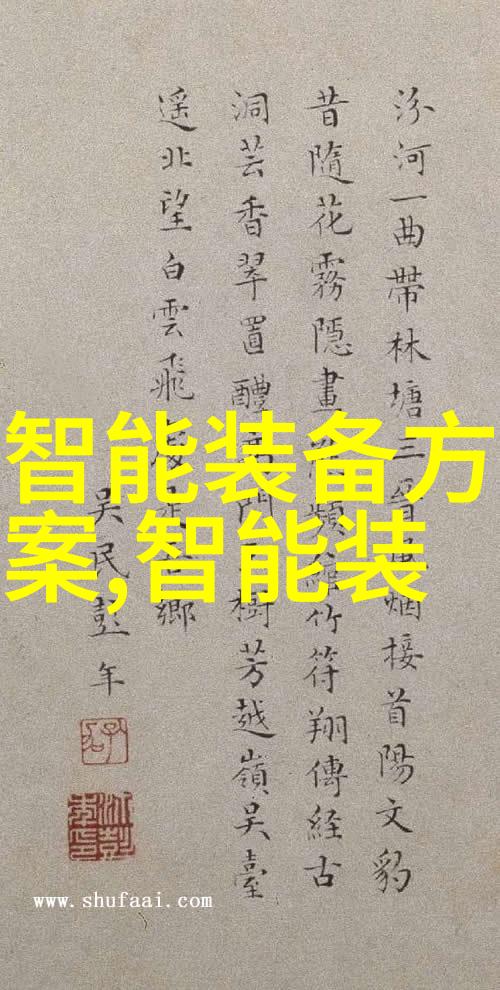 汾河一曲帶林塘三晉烟接首陽文豹
昔隨花霧隱畫竹符翔傳経古
洞芸香翠置醴門樹芳越嶺吳臺
遥北望白雲飛處是鄉
吳民彭年
智能装备方
案,智能装
www.shufaai.com